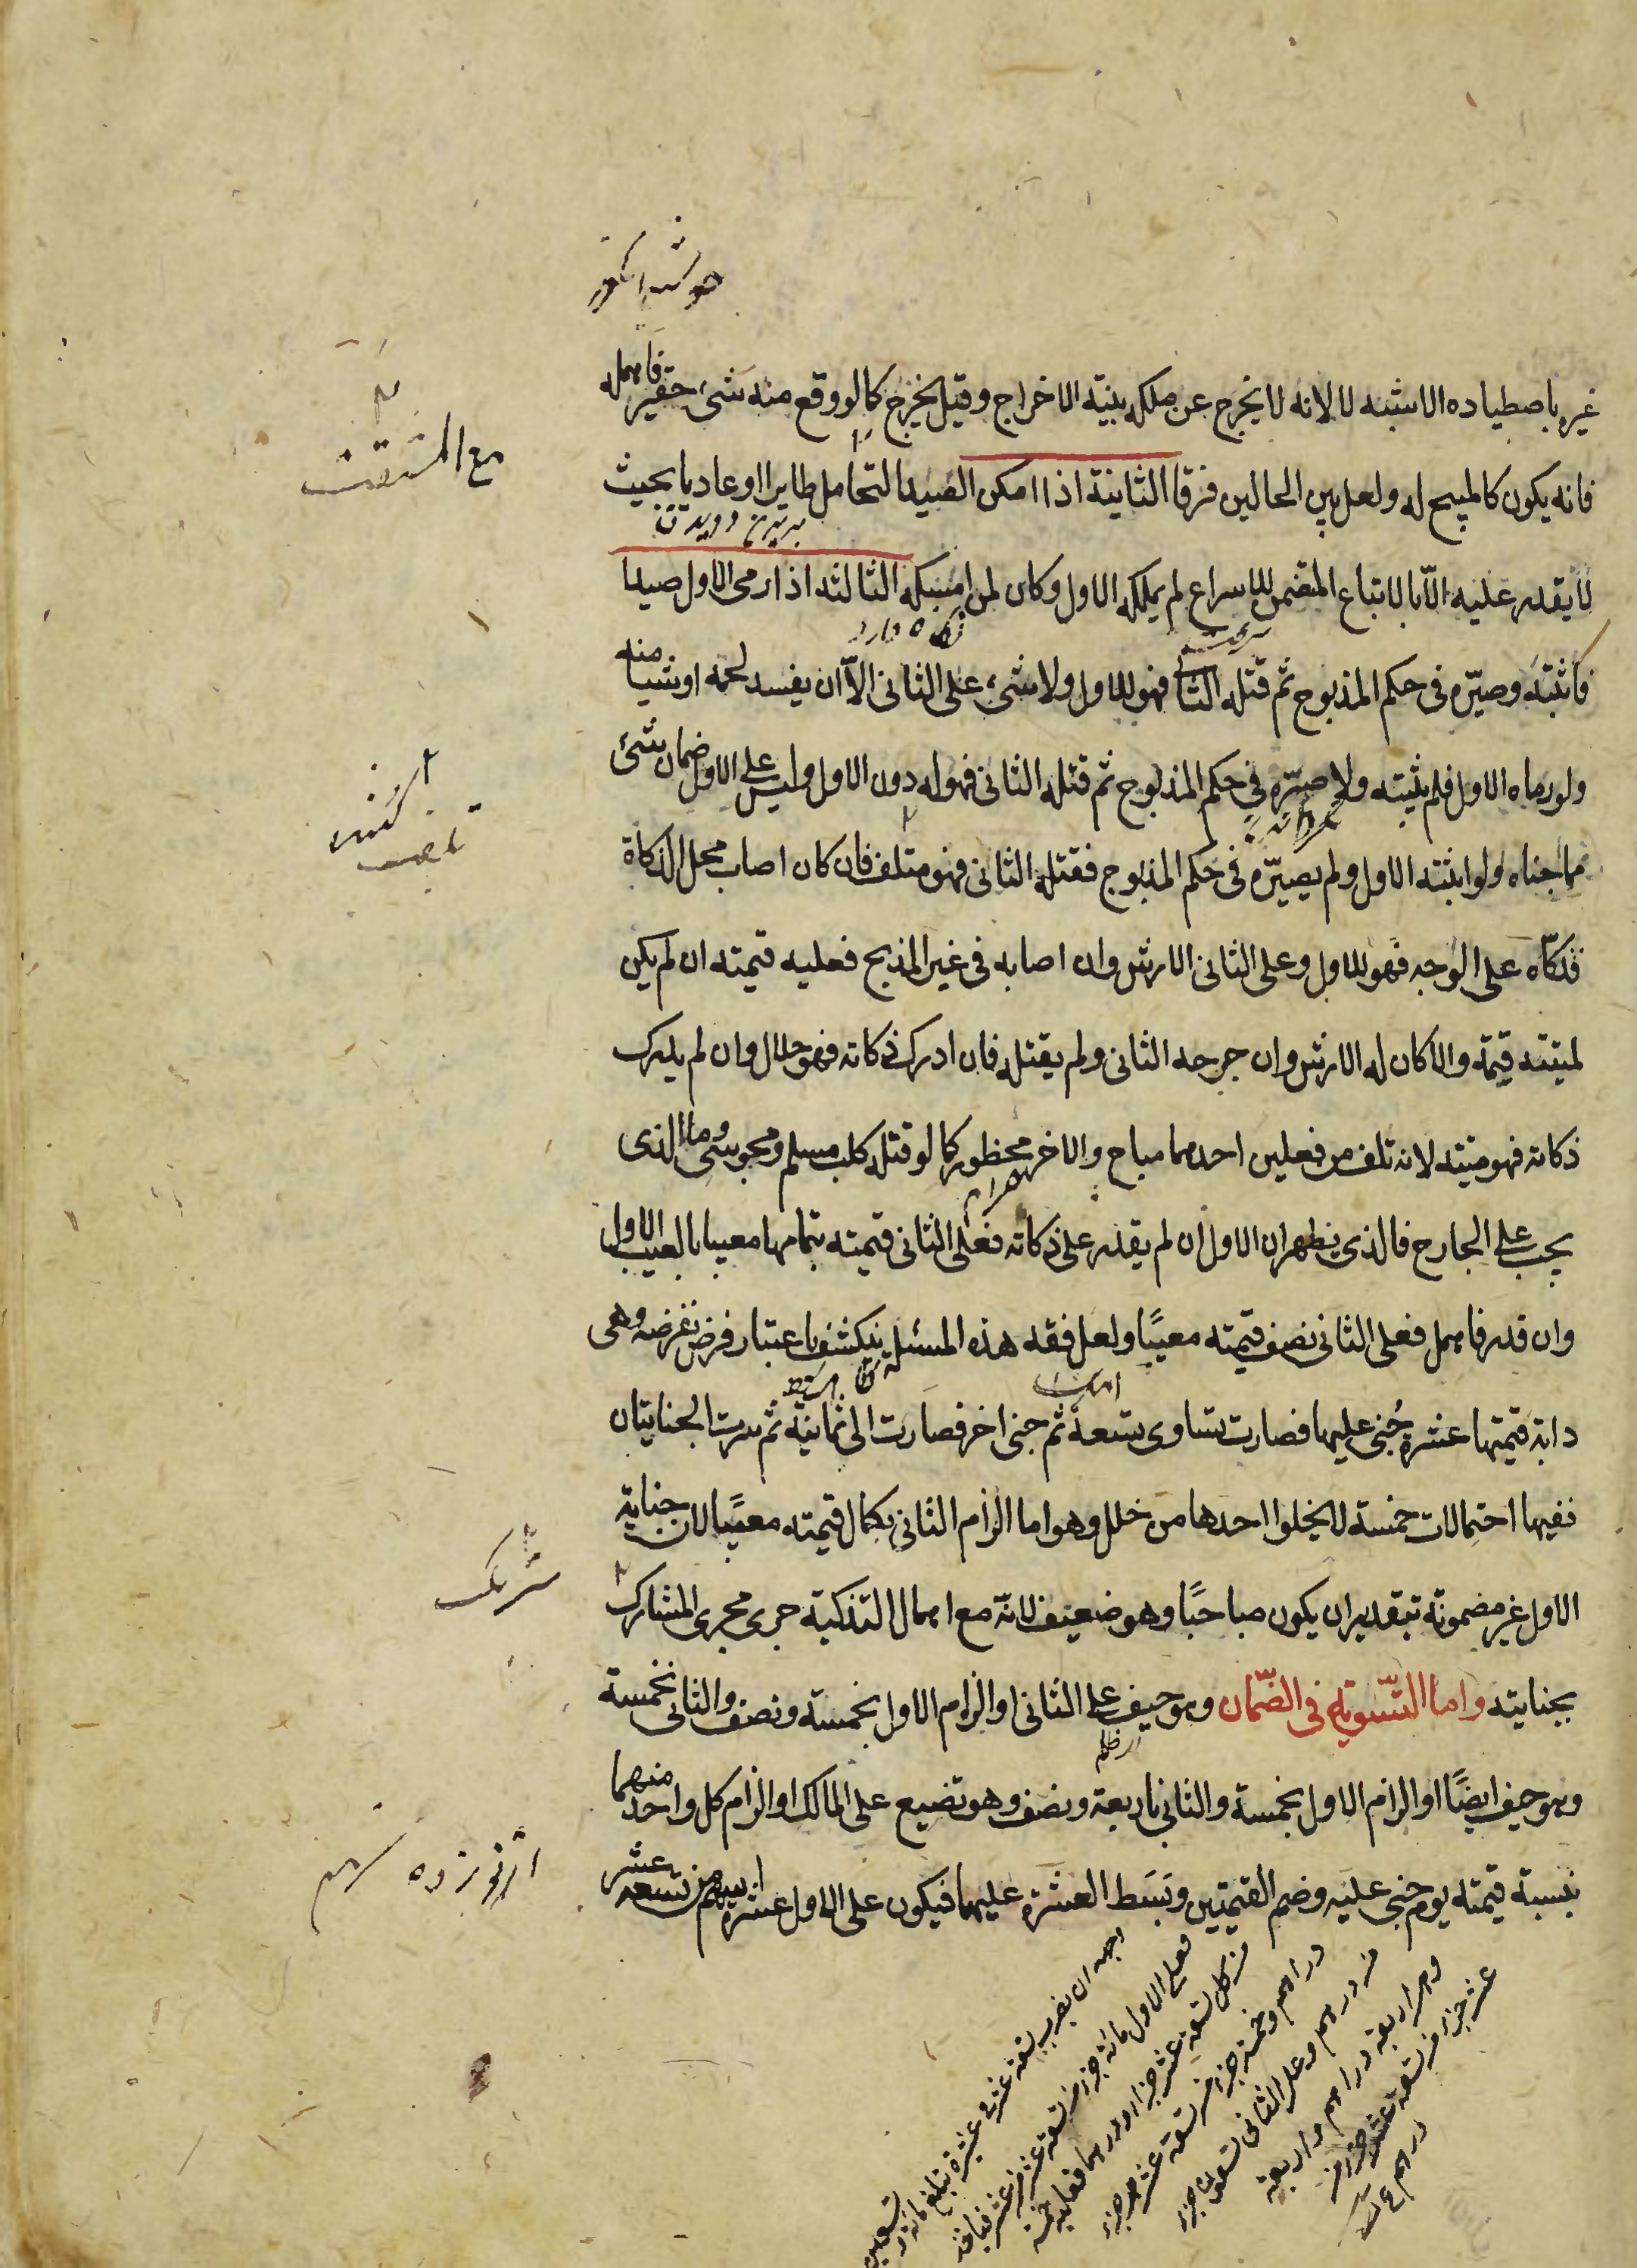 خوشه انگور
غيره باصطياده الاشبه لا لانه لا يخرج عن ملكه بنيّة الاخراج وقيل يخرج كما لو وقع منه شئ حقير فاهمله
فانه يكون كالمبيح له ولعل بين الحالين فرقا الثانية اذا امكن الصيد التحامل طايرا او عاديا بحيث
پريدن دويدن
لا يقدر عليه الّا بالاتباع المتضمن للاسراع لم يملكه الاول وكان لمن امسكه الثالثه اذا رمى الاول صيدا
نگاه دارد
سرعت
فاثبته وصيّره فى حكم المذبوح ثم قتله الثا فهو للاول ولا شئ على الثانى الّا ان يفسد لحمه او شيئا منه
ولو رماه الاول فلم يثبته ولا صيّره فى حكم المذبوح ثم قتله الثانى فهو له دون الاول وليس على الاول ضمان شئ
مما جناه ولو اثبته الاول ولم يصيّره فى حكم المذبوح فقتله الثانى فهو متلف فان كان اصاب محل الذكاة
فذكّاه على الوجه فهو للاول وعلى الثانى الارش وان اصابه فى غير المذبح فعليه قيمته ان لم يكن
لميتته قيمة والا كان له الارش وان جرحه الثانى ولم يقتله فان ادرك ذكاته فهو حلال وان لم يدرك
ذكاته فهو ميتة لانه تلف من فعلين احدهما مباح والاخر محظور كما لو قتله كلب مسلم ومجوسى وما الذى
حرام
يجب على الجارح فالذى يظهر ان الاول ان لم يقدر على ذكاته فعلى الثانى قيمته بتمامها معيبا بالعيب الاول
وان قدر فاهمل فعلى الثانى نصف قيمته معيبًا ولعل فقه هذه المسئلة ينكشف باعتبار فرض نفرضه وهى
دابة قيمتها عشرة جُنى عليها فصارت تساوى تسعة ثم جنى اخر فصارت الى ثمانية ثم سرت الجنايتان
ففيها احتمالات خمسة لا يخلوا احدها من خلل وهو اما الزام الثانى بكمال قيمته معيبًا لان جناية
الاول غير مضمونة بتقدير ان يكون مباحًا وهو ضعيف لانّه مع اهمال التذكية جرى مجرى المشارك
بجنايته واما التّسوية فى الضّمان وهو حيف على الثانى او الزام الاول بخمسة ونصف والثانى بخمسة
وهو حيف ايضًا او الزام الاول بخمسة والثانى باربعة ونصف وهو تضييع على المالك او الزام كل واحد منهما
بنسبة قيمته يوم جنى عليه وضم القيمتين وبَسَط العشرة عليهما فيكون على الاول عشرة اسهم من تسعة عشر
مع المشقت
كشنده
تلف
شريک
از نوزده سهم
وجه ان يضرب تسعة عشر فى عشرة تبلغ مائة وتسعين
فعلى الاول مائة جزء من تسعة عشر
من كل تسعة عشر جزء درهما فعليه خمسة
دراهم وخمسة جزء من تسعة عشر جزء
من درهم وعلى الثانى تسعون جزء
وهى اربعة دراهم واربعة
عشر جزء من تسعة عشر جزء من
درهم